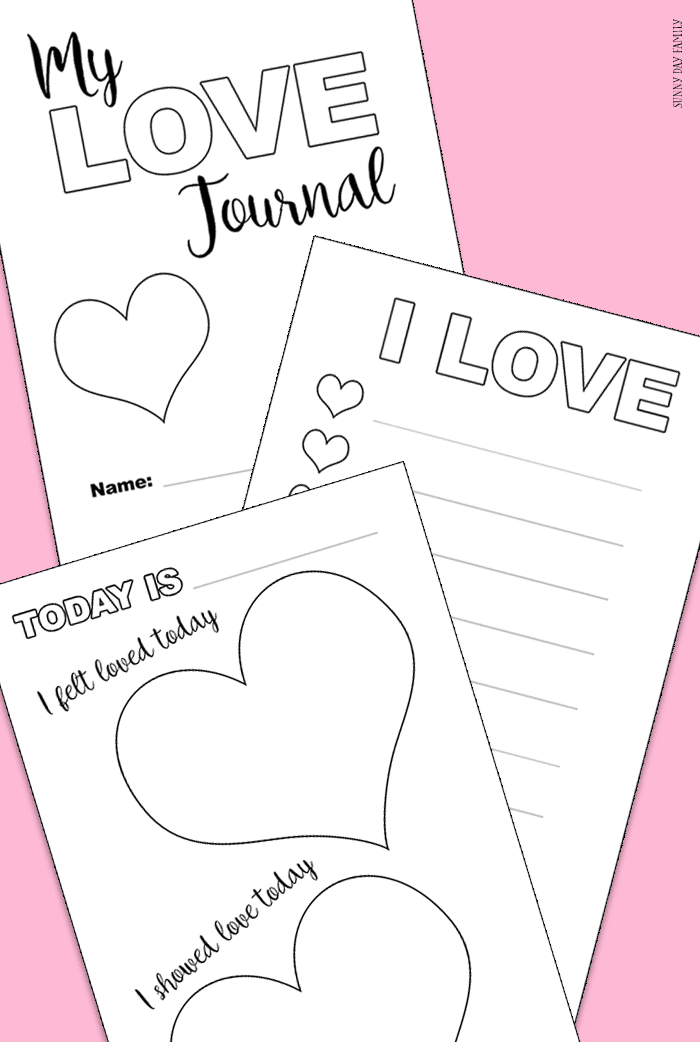 My
LOVE
Journal
Name:
SUNNY DAY FAMILY
I LOVE
TODAY IS
I felt loved today
I showed love today